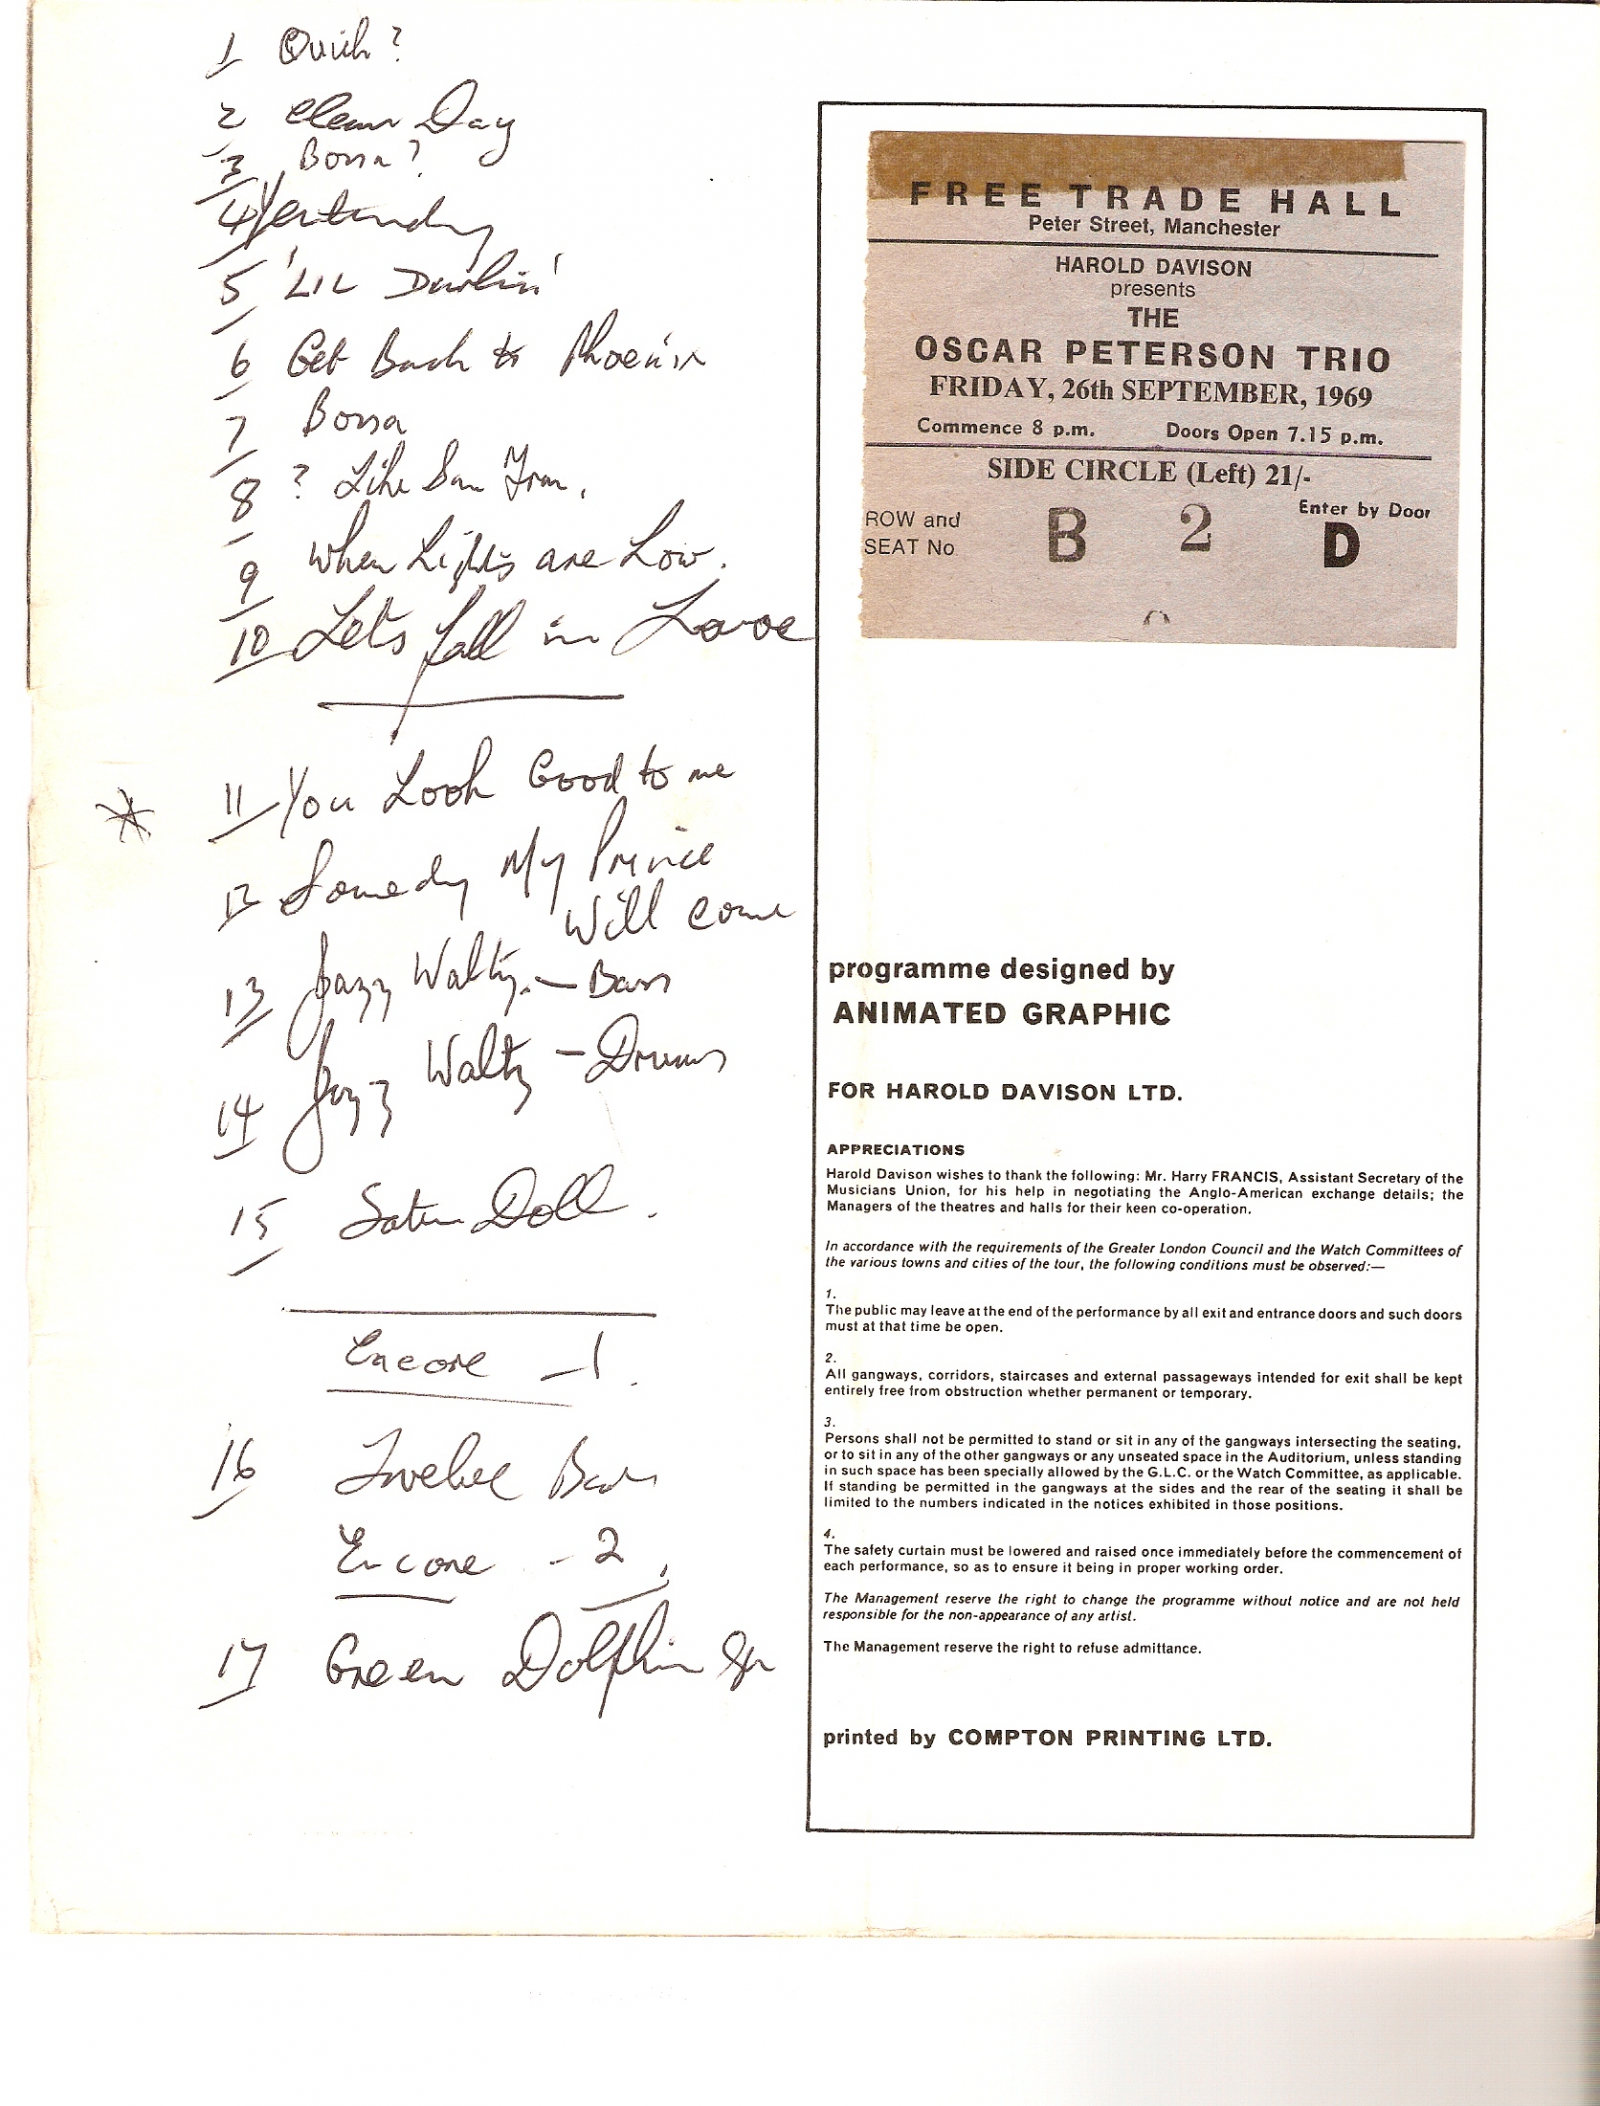 1 Quick?
2 Clear Day
3 Bossa?
4 Yesterday
5 'LIL Darlin'
6 Get Back to Phoenix
7 Bossa
8 ? Like San Fran.
9 When Lights are Low.
10 Lets fall in Love
* 11 You Look Good to me
12 Someday My Prince
Will come
13 Jazz Waltz - Bass
14 Jazz Waltz - Drums
15 Satin Doll.
Encore - 1.
16 Twelve Bar
Encore - 2.
17 Green Dolphin St
FREE TRADE HALL
Peter Street, Manchester
HAROLD DAVISON
presents
THE
OSCAR PETERSON TRIO
FRIDAY, 26th SEPTEMBER, 1969
Commence 8 p.m. Doors Open 7.15 p.m.
SIDE CIRCLE (Left) 21/-
ROW and
SEAT No. B 2
Enter by Door
D
programme designed by
ANIMATED GRAPHIC
FOR HAROLD DAVISON LTD.
APPRECIATIONS
Harold Davison wishes to thank the following: Mr. Harry FRANCIS, Assistant Secretary of the
Musicians Union, for his help in negotiating the Anglo-American exchange details; the
Managers of the theatres and halls for their keen co-operation.
In accordance with the requirements of the Greater London Council and the Watch Committees of
the various towns and cities of the tour, the following conditions must be observed:—
1.
The public may leave at the end of the performance by all exit and entrance doors and such doors
must at that time be open.
2.
All gangways, corridors, staircases and external passageways intended for exit shall be kept
entirely free from obstruction whether permanent or temporary.
3.
Persons shall not be permitted to stand or sit in any of the gangways intersecting the seating,
or to sit in any of the other gangways or any unseated space in the Auditorium, unless standing
in such space has been specially allowed by the G.L.C. or the Watch Committee, as applicable.
If standing be permitted in the gangways at the sides and the rear of the seating it shall be
limited to the numbers indicated in the notices exhibited in those positions.
4.
The safety curtain must be lowered and raised once immediately before the commencement of
each performance, so as to ensure it being in proper working order.
The Management reserve the right to change the programme without notice and are not held
responsible for the non-appearance of any artist.
The Management reserve the right to refuse admittance.
printed by COMPTON PRINTING LTD.